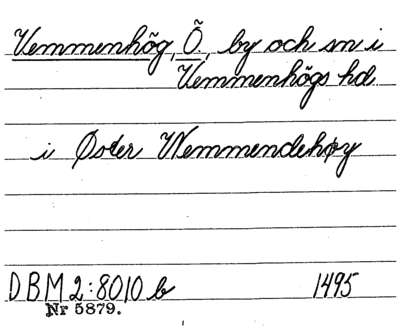 Vemmenhög, Ö., by och sn i
Vemmenhögs hd
i Øster Wemmendehøy
DBM 2:8010 b 1495
Nr 5879.